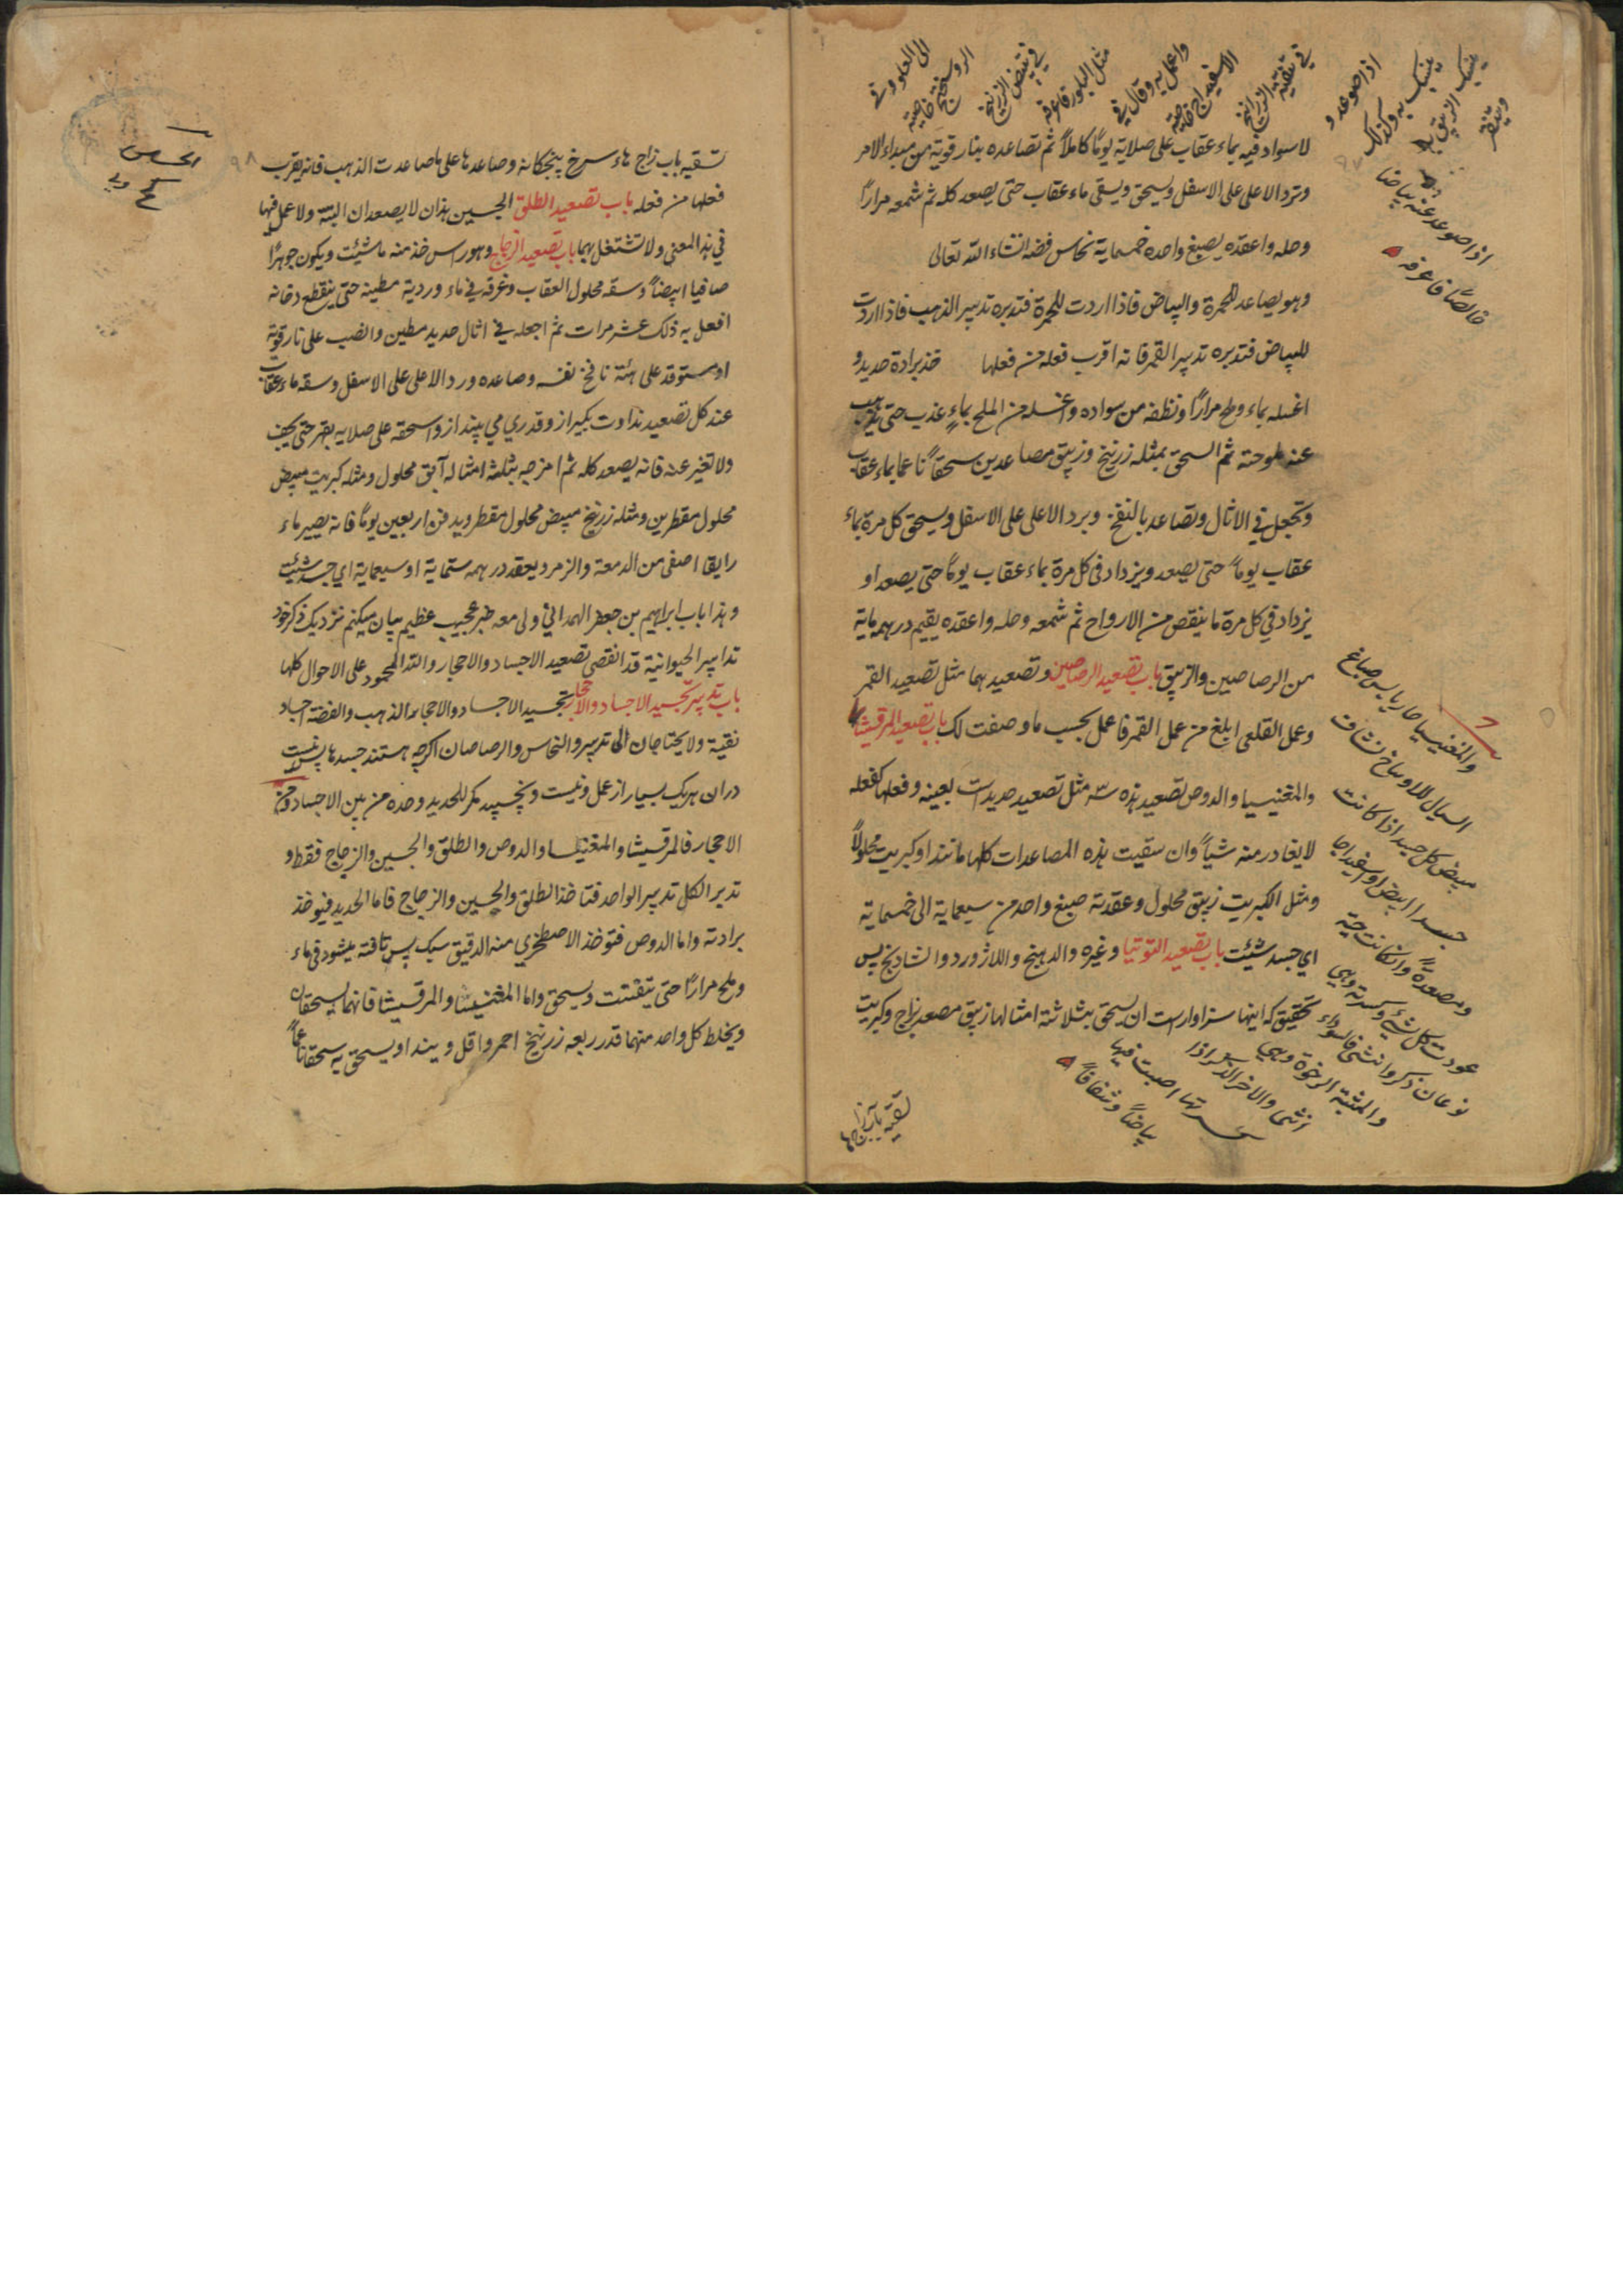 لاسواد فيه بماء عقاب على صلاية يوماً كاملاً ثم تصاعده بنار قوية من مبداء الامر
وترد الاعلى على الاسفل ويسحق ويسقى ماء عقاب حتى يصعد كله ثم شمعه مراراً
وحله واعقده يصبغ واحده خمسماية نحاس فضة انشاء الله تعالى
وهو يصاعد للحمرة والبياض فاذا اردت للحمرة فتدبره تدبير الذهب فاذا اردت
للبياض فتدبره تدبير القمر فانه اقرب فعله من فعلها خذ برادة حديد و
اغسله بماء وملح مراراً ونظفه من سواده واغسله من الملح بماءٍ عذب حتى يذهب
عنه ملوحته ثم اسحق بمثله زرنيخ وزيبق مصاعدين سحقاً ناعما بماء عقاب
وتجعل في الاثال وتصاعد بالنفخ وبرد الاعلى على الاسفل ويسحق كل مرة بماء
عقاب يوماً حتى يصعد ويزداد في كل مرة بماء عقاب يوماً حتى يصعد او
يزداد في كل مرة ما ينقص من الارواح ثم شمعه وحله واعقده يقيم درهمه ماية
من الرصاصين والزيبق باب تصعيد الرصاصين وتصعيدهما مثل تصعيد القمر
وعمل القلعى ابلغ من عمل القمر فاعمل بحسب ما وصفت لك باب تصعيد المرقيشا
والمغنيسيا والدوص تصعيد هذه سه مثل تصعيد حديد است بعينه وفعلها كفعله
لا يغادر منه شياً وان سقيت هذه المصاعدات كلها مانند او كبريت محلولاً
ومثل الكبريت زيبق محلول وعقدته صبغ واحد من سبعماية الى خمسماية
اي جسد شئت باب تصعيد التوتيا وغيره والدهنج واللاژورد والشادنج پس
تحقيق كه اينها سزاوار است ان يسحق بثلاثة امثالها زيبق مصعد بزاج وكبريت
في تنقية الزرانيخ
الاسفيداج خاصية
واعمل به وقال في
مثل البلور فاعرفه
في تبيض الزرنيخ
الروسختج خاصية
اذا صوعد عنه بياضا
خالصاً فاعرفه
والمغنيسيا حار يابس صباغ
السيال للاوساخ نشافت
مبيض كل جسد اذا كانت
جسدا ابيض او اسفيداجا
ومصعدةً وان كانت حية
نوعان ذكر وانثى فاسوداء
والمثبتة الرخوة وهي
انثى والاخر الذكر اذا
كسرتها اصبت فيها
بياضاً وشفافاً
تسقيه باب زاج هاء سرخ پنجكانه وصاعدها على ما صاعدت الذهب فانه يقرب
فعلها من فعله باب تصعيد الطلق الجبسين هذان لا يصعدان البتة ولا عمل فيها
في هذا المعنى ولا تشتغل بهما باب تصعيد الزجاج وهو راس خذ منه ما شئت ويكون جوهراً
صافيا ابيضاً وسقه محلول العقاب وغرقه في ماء وردية مطينة حتى ينقطع دخانه
افعل به ذلك عشر مرات ثم اجعله في اثال حديد مطين وانصب على نار قوية
او مستوقد على هئة نافخ نفسه وصاعده ورد الاعلى على الاسفل وسقه ماء عقاب
عند كل تصعيد نداوت بگير از و قدري مي پيند از واسحقه على صلايه بفهر حتى يجف
ولا تغير عنه فانه يصعد كله ثم امزجه بثلثة امثاله آبق محلول ومثله كبريت مبيض
محلول مقطرين ومثله زرنيخ مبيض محلول مقطر ويدفن اربعين يوماً فانه يصير ماء
رايقا اصفى من الدمعة والزمرد يعقد درهمه ستماية او سبعماية اي جسد شئت
وهذا باب ابراهيم بن جعفر الهمداني ولى معه خبر عجيب عظيم بيان ميكنم نزديك ذكر خود
تدابير الحيوانية قد انقضى تصعيد الاجساد والاحجار والله المحمود على الاحوال كلها
باب تدبير تجسيد الاجساد والاحجار تجسيد الاجساد والاحجار اما الذهب والفضة اجساد
نقية ولا يحتاجان الى تدبير والنحاس والرصاصان اگرچه هستند جسدها پس نيست
در ان هريك بسيار از عمل ونيست ونچسپيد مگر للحديد وحده من بين الاجساد ومن
الاحجار فالمرقيشا والمغنيسا والدوص والطلق والجبسين والزجاج فقط و
تدبير الكل تدبير الواحد فتاخذ الطلق والجبسين والزجاج فاما الحديد فيوخذ
برادته واما الدوص فتوخذ الاصطخري منه الدقيق سبك پس تافته ميشود في ماء
وملح مراراً حتى يتفتت ويسحق واما المغنيسا والمرقيشا فانهما يسحقان
ويخلط كل واحد منهما قدر ربعه زرنيخ احمر واقل ويندا ويسحق به سحقاً ناعماً